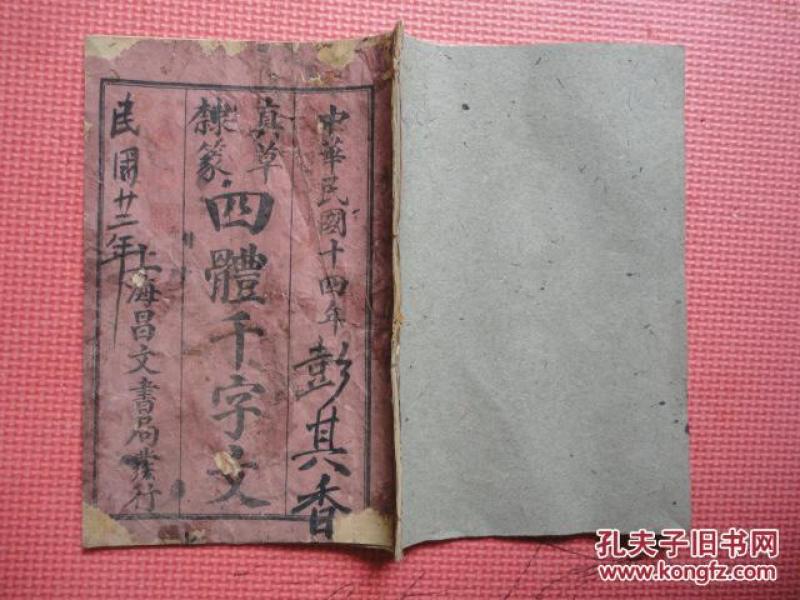 中華民國十四年
彭其香
真草
隸篆
四體千字文
上海昌文書局發行
民国廿二年
孔夫子旧书网
www.kongfz.com